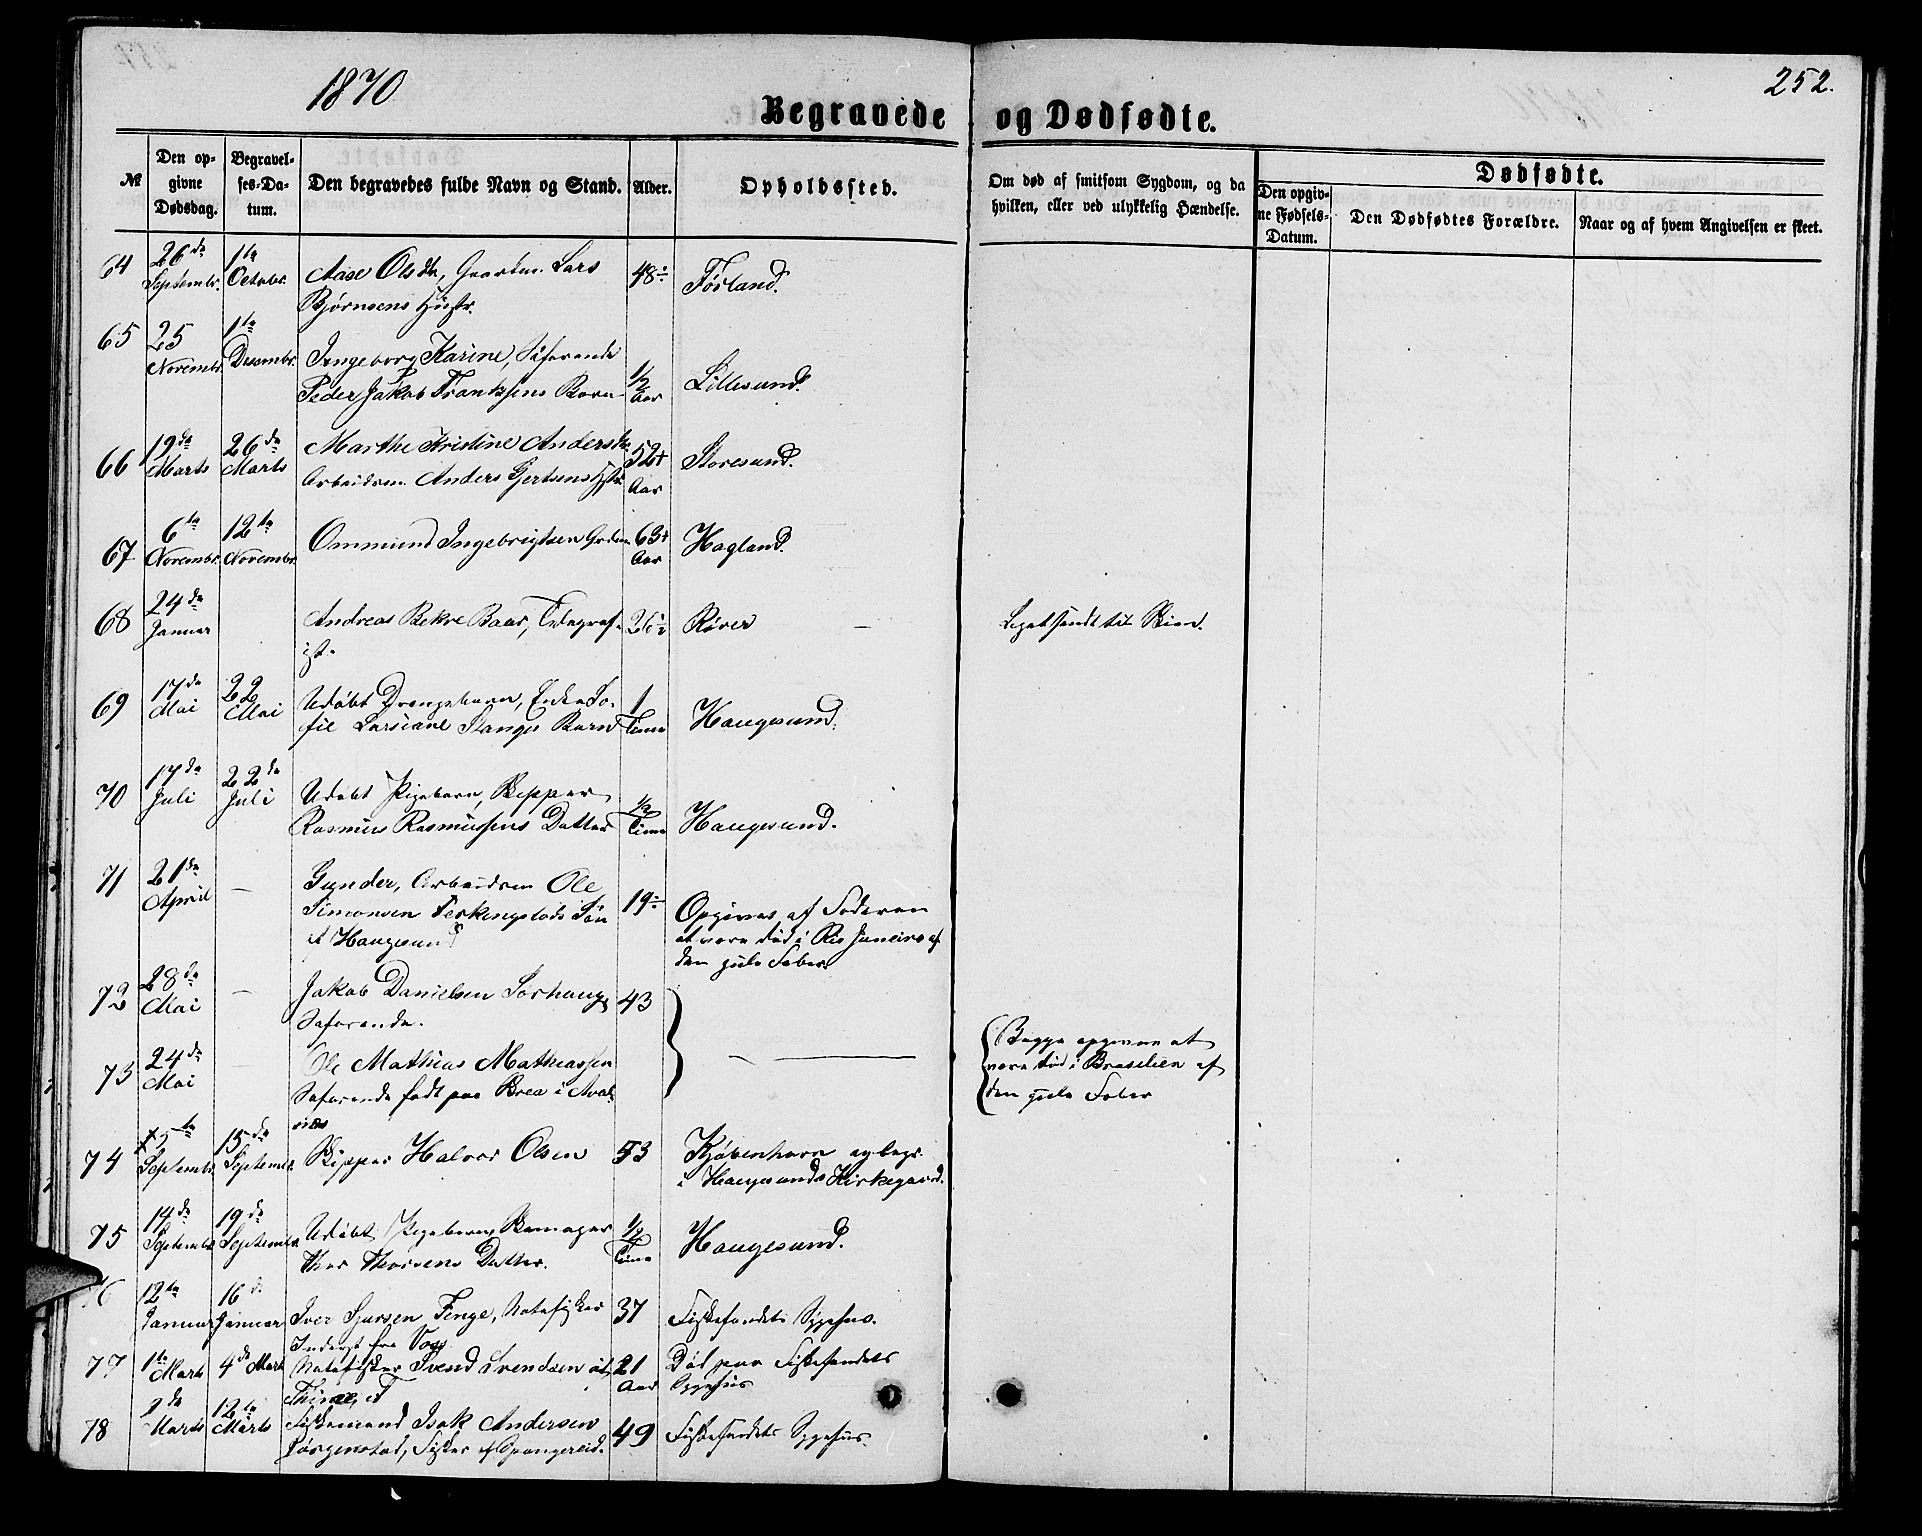 1870
252.
Begravede og Dødfødte.
№
Den opgivne Dødsdag.
Begravelses-Datum.
Den begravedes fulde Navn og Stand.
Alder.
Opholdssted.
Om død af smitsom Sygdom, og da hvilken, eller ved ulykkelig Hændelse.
Dødfødte.
Den opgivne Fødsels-Datum.
Den Dødfødtes Forældre.
Naar og af hvem Angivelsen er skeet.
64 26de Septembr. 1te Octobr. Aase Olsdtr, Gaardm. Lars 48 Førland.
Bjørnsens Hustr.
65 25 Novembr. 1te Decembr. Ingeborg Karine, Søfarende
Peder Jakob Frantzsens Barn 1/2 Aar Lillesund.
66 19de Marts 26de Marts Marthe Kristine Andersdtr. 52 Aar Storesund.
Arbeidsm. Anders Gjertsens Hustr.
67 6te Novembr. 12te Novembr. Ommund Ingebrigtsen 63 Aar Hagland.
68 24de Januar Andreas Bekre Baar, Telegraf- 26 Røver Liget sendt til Skien.
ist.
69 17de Mai 22 Mai Udøbt Drengebarn, Enke So- 1 Time Haugesund.
fie Larsiane Stanges Barn
70 17de Juli 22de Juli Udøbt Pigebarn, Skipper
Rasmus Rasmussens Datter 1/2 Time Haugesund.
71 21de April — Gunder, Arbeidsm Ole 19
Simonsen Ferkingstads Søn Opgives af Foderen
af Haugesund at være død i Rio Janeiro af
den gule Feber.
72 28de Mai — Jakob Danielsen Sørhaug, 43
Søfarende.
73 24de Mai — Ole Mathias Mathiassen
Søfarende født paa Brea i Aval-
snæs
Begge opgivne at
være død i Brasilien af
den gule Feber
74 5te Septembr. 15de Septembr. Skipper Halvor Olsen 53 Kjøbenhavn og begr.
i Haugesunds Kirkegaard.
75 14de Septembr. 19de Septembr. Udøbt Pigebarn, Skomager 1/2 Time Haugesund.
Thor Thorsens Datter.
76 12te Januar 16de Januar Iver Sjursen Finge, Notefisker 37 Fiskefondets Sygehus.
Inderst fra Voss
77 1te Marts 4de Marts Notefisker Svend Svendsen 21 Aar Død paa Fiskefondets
Sygehus
78 2de Marts 12te Marts Fiskemand Isak Andersen 49 Fiskefondets Sygehus.
Jørgenstad, Fisker af Spangereid.